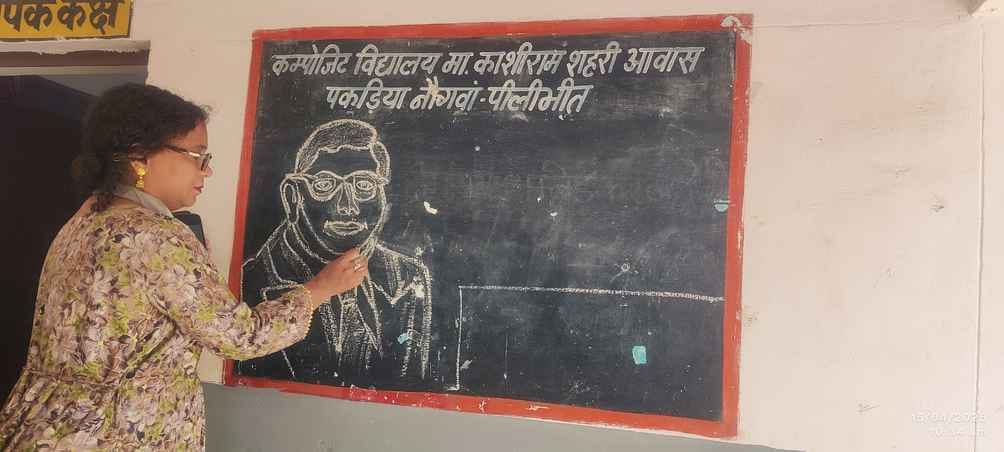 पक कक्ष
कम्पोजिट विद्यालय मा. काशीराम शहरी आवास
पकड़िया नौगवां - पीलीभीत